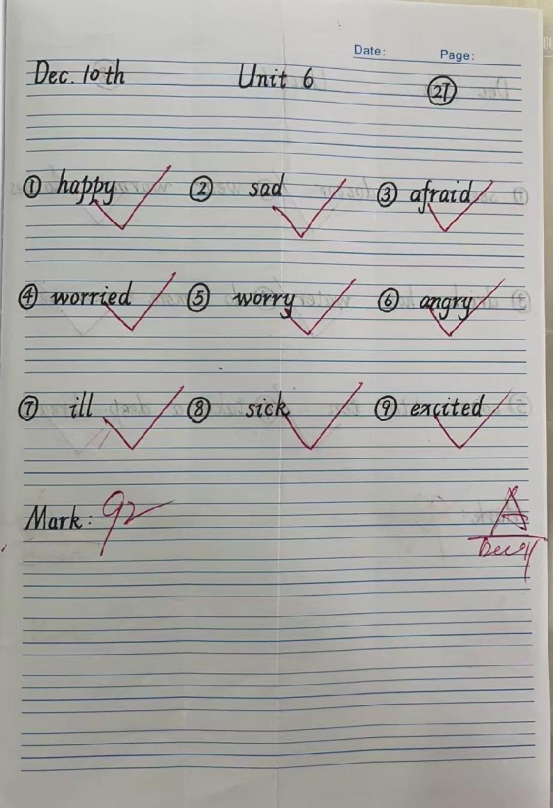 Date: Page:
Dec. 10th Unit 6 27
① happy ② sad ③ afraid
④ worried ⑤ worry ⑥ angry
⑦ ill ⑧ sick ⑨ excited
Mark: 92 A
Dec 11